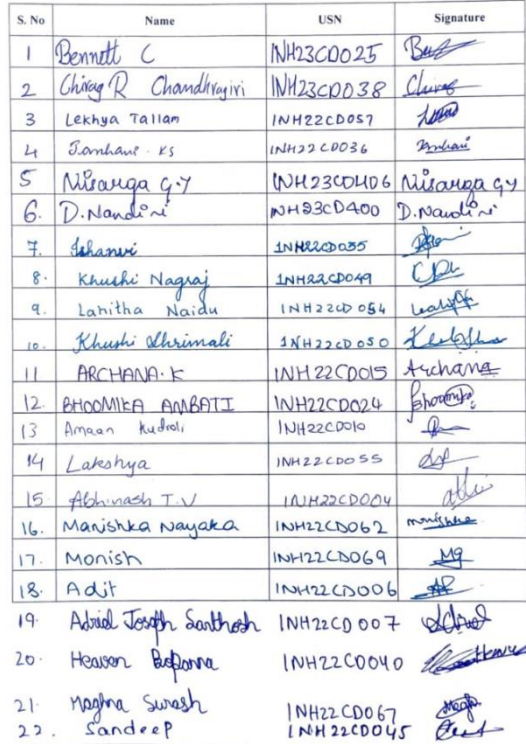 S. No Name USN Signature
1 Bennett C 1NH23CD025
2 Chirag R Chandhragiri 1NH23CD038 Chirag
3 Lekhya Tallam 1NH22CD057
4 Jamhavi . KS 1NH22CD036 Jamhavi
5 Nisarga G.Y 1NH23CD406 Nisarga G Y
6. D. Nandini 1NH23CD400 D. Nandini
7. Ishanvi 1NH22CD035
8. Khushi Nagraj 1NH22CD049
9. Lahitha Naidu 1NH22CD054
10. Khushi Shrimali 1NH22CD050
11 ARCHANA. K 1NH22CD015 Archana
12. BHOOMIKA AMBATI 1NH22CD024 Bhoomika
13 Amaan Kudroli 1NH22CD010
14 Lakshya 1NH22CD055
15 Abhinash T.V 1NH22CD004
16. Manishka Nayaka 1NH22CD062 manishka
17. Monish 1NH22CD069
18. Adit 1NH22CD006
19. Adriel Joseph Santhosh 1NH22CD007
20. Heaven Bopanna 1NH22CD040
21. Meghna Suresh 1NH22CD067
22. Sandeep 1NH22CD045